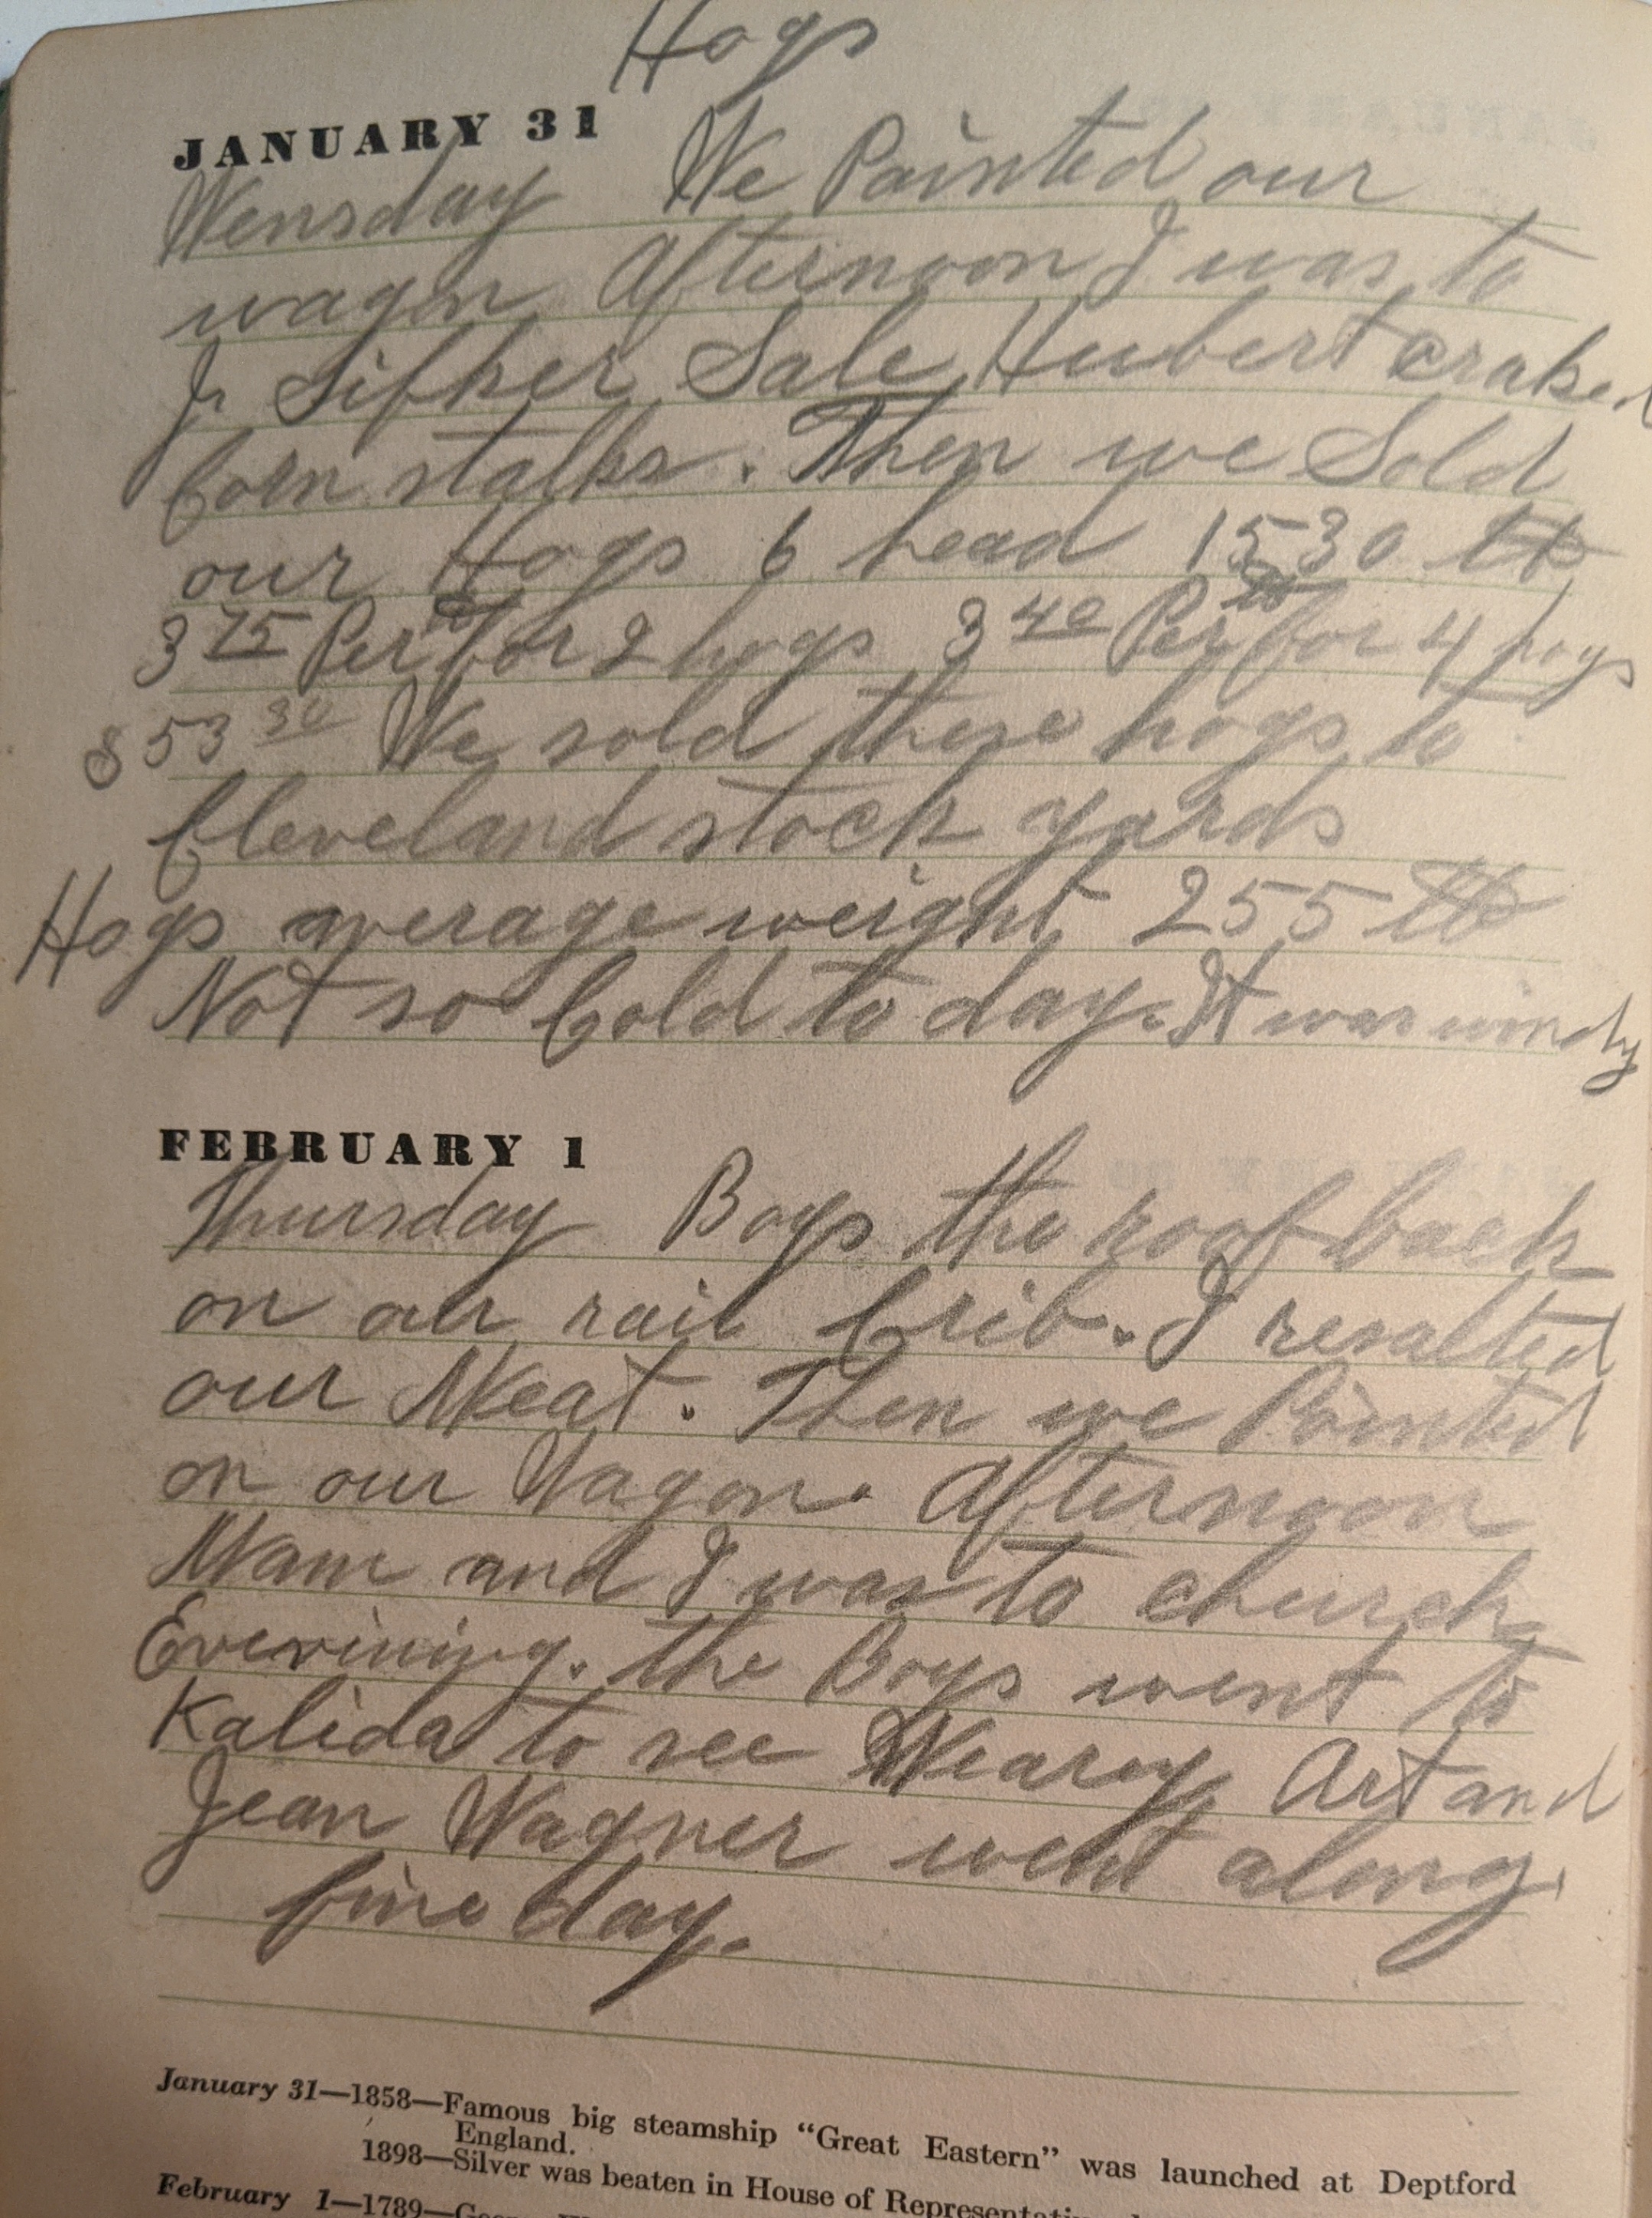 Hogs
JANUARY 31
Wensday We Painted our
wagon Afternoon I was to
J. Sifker Sale, Hubert craked
Corn stalks. Then we Sold
our Hogs 6 head 1530 lb
3 75 Per for 2 hogs 3 40 Per lb for 4 hogs
$53 30 We sold these hogs to
Cleveland stock yards
Hogs average weight 255 lb
Not so Cold to day. It was windy
FEBRUARY 1
Thursday Boys the roof back
on our rail Crib. I resalted
our Meat. Then we Painted
on our Wagon. Afternoon
Mam and I was to church
Evening. the Boys went to
Kalida to see Art and
Jean Wagner went along.
fine day.
January 31—1858—Famous big steamship “Great Eastern” was launched at Deptford
England.
1898—Silver was beaten in House of
February 1—1789—